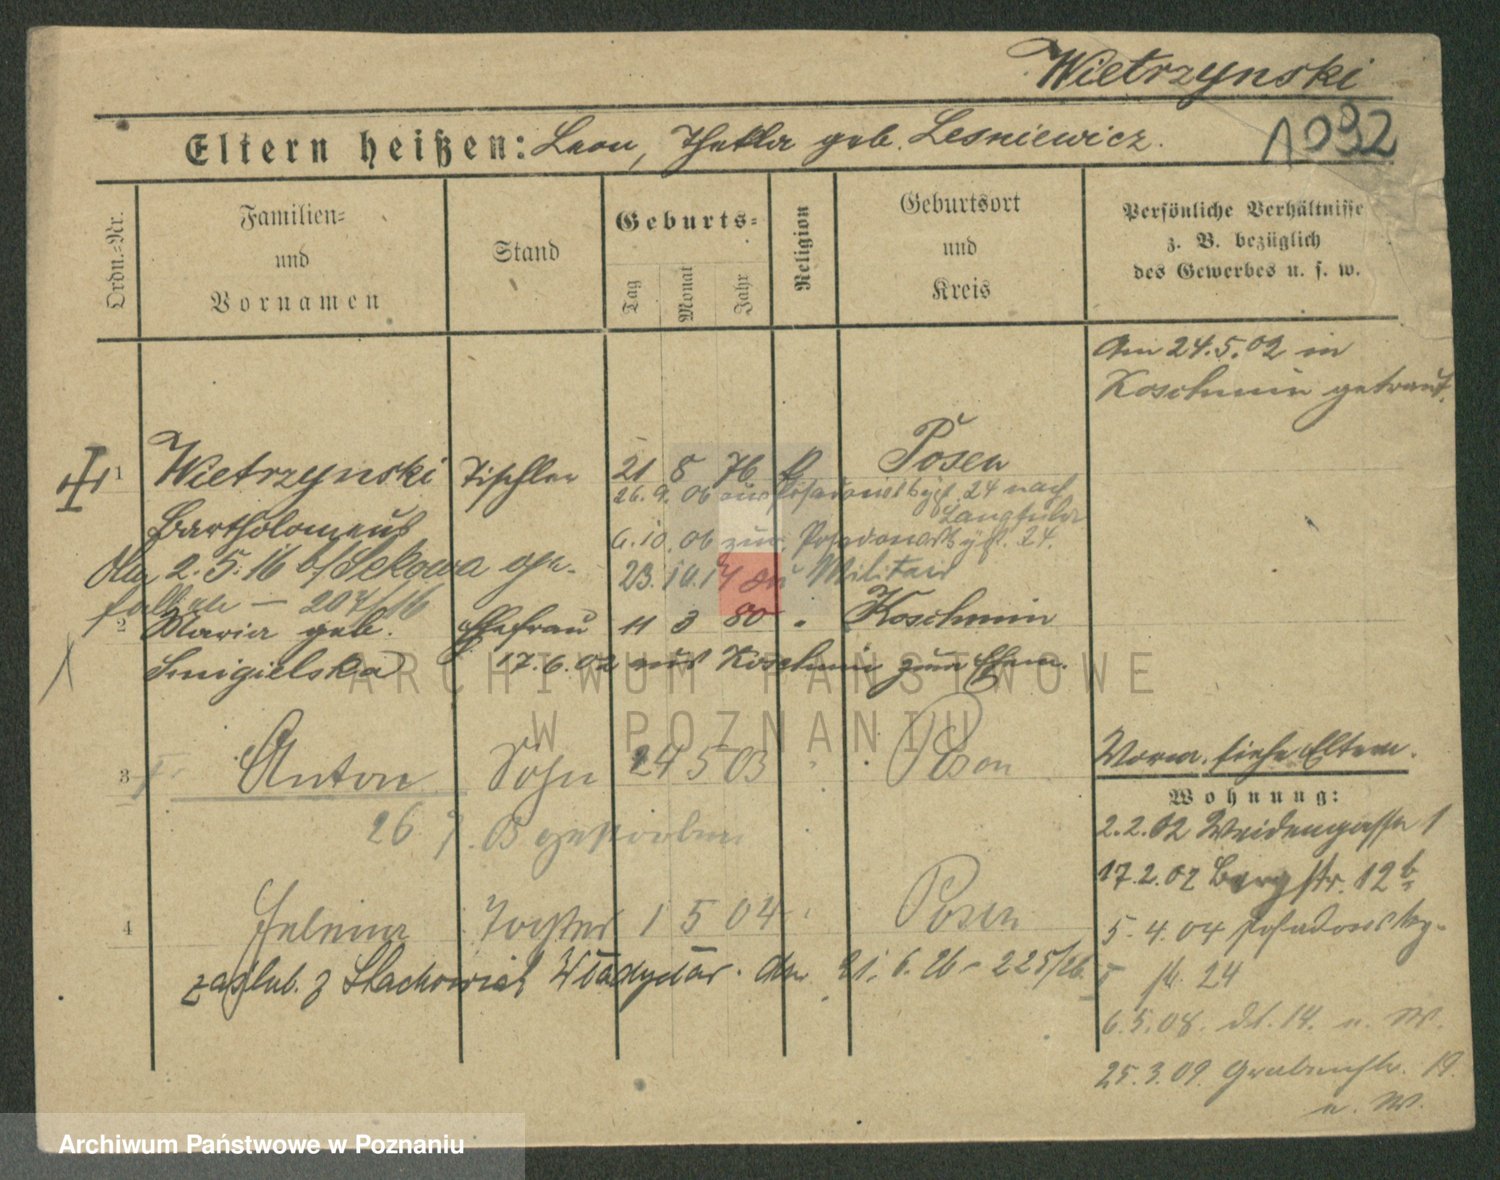 Wietrzynski
Eltern heißen: Leon, Thekla geb. Lesniewicz.
1092
Ordn.-Nr.
Familien- und Vornamen
Stand
Geburts-
Tag Monat Jahr
Religion
Geburtsort und Kreis
Persönliche Verhältnisse
z. B. bezüglich
des Gewerbes u. s. w.
Am 24.5.02 in
Koschmin getraut.
1 Wietrzynski Tischler 21 8 76 Posen
26.9.06 aus 24 nach
Langfuhr
Bartholomeus
6.10.06 zur. 24.
Am 2.5.16 b/Sekowa ge-
23.10.14 zu Militair
fallen — 207/16
2 Maria geb. Ehefrau 11 3 80 " Koschmin
Smigielska 17.6.02 aus Koschmin zum Ehem.
ARCHIWUM PAŃSTWOWE
W POZNANIU
3 Anton Sohn 24 5 03 " Posen
26 9. 03 gestorben
Vorw. siehe Eltern.
Wohnung:
2.2.02 Weidengasse 1
17.2.02 Bergstr. 12b
4 Helena Tochter 1 5 04 " Posen
5.4.04 Posadowsky-
str. 24
zaślub. z Stachowiak Władysław. dn. 21.6.26 - 225/26.
6.5.08. dt. 14. n. W.
25.3.09. Grabenstr. 19.
n. W.
Archiwum Państwowe w Poznaniu